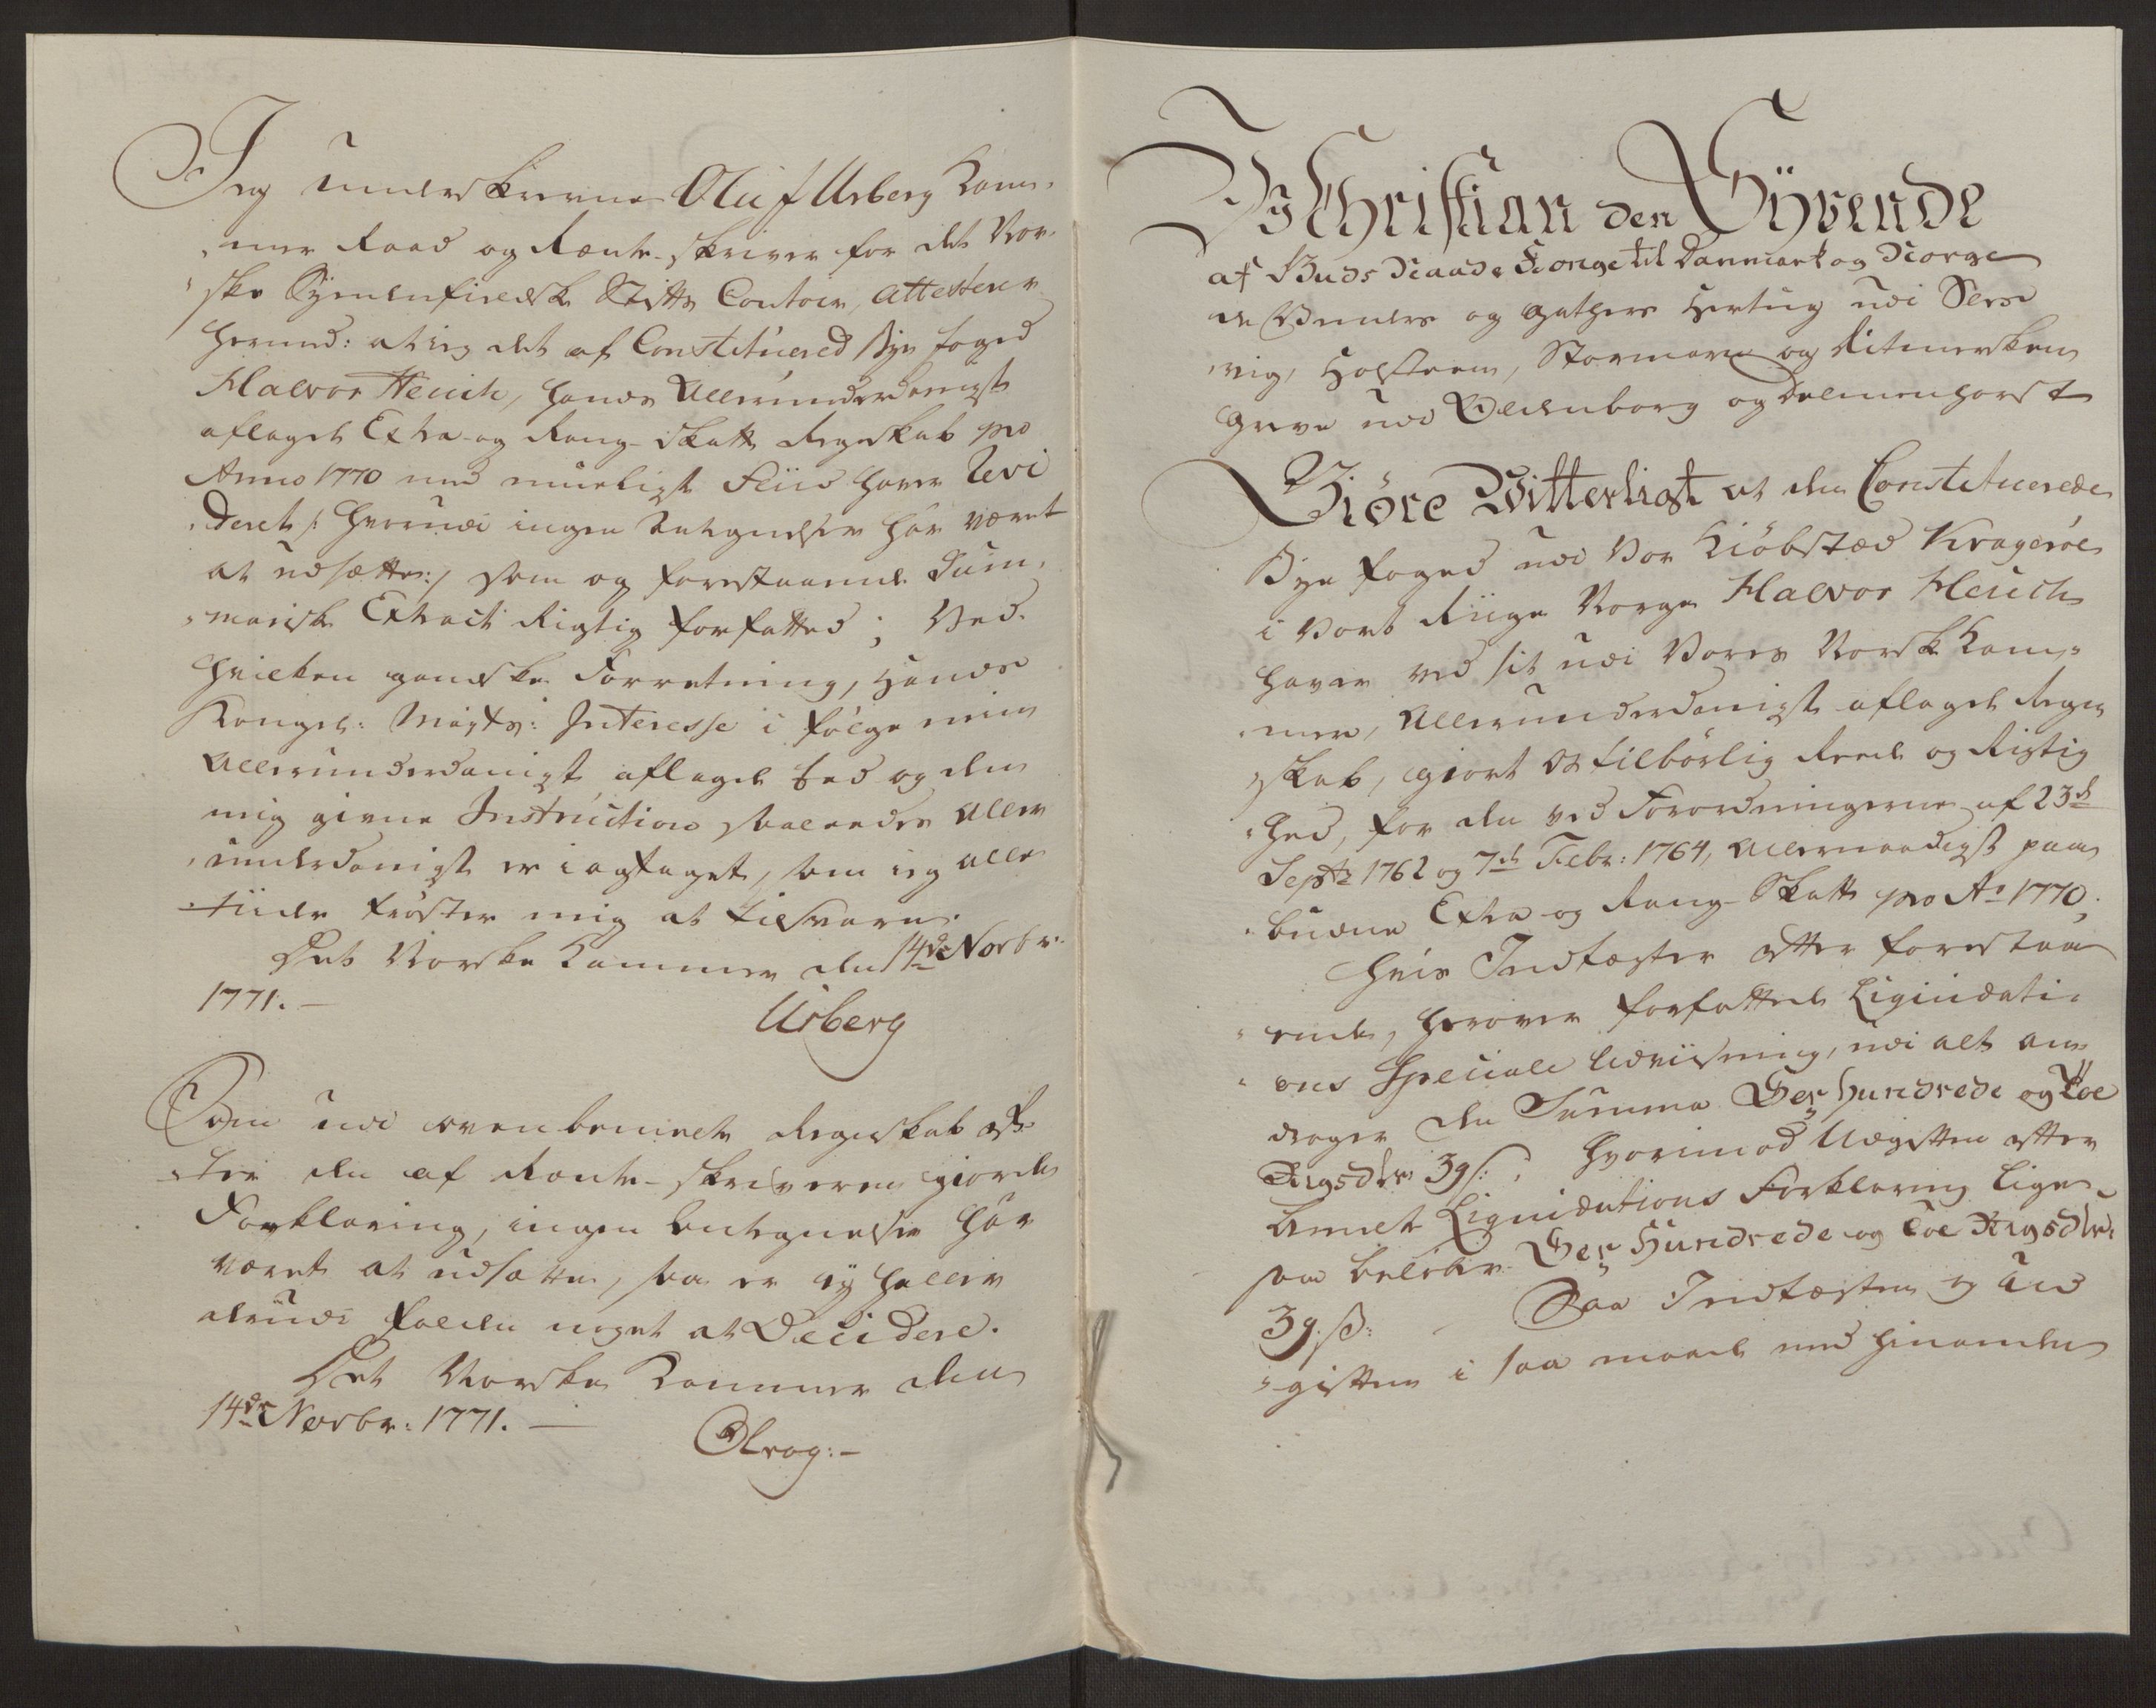 Jeg underskrevne Oluf Urberg Kam-
mer Raad og Rente-skriver for det Nor-
ske Synden fieldske Stifts Contoir, attesterer
hermed: at jeg det af Constitueret Bye foged
Halvor Heuch, hands Allerunderdanigst
aflagde Extra og Rang-skatts Regnskab pro
Anno 1770 med mueligst Fliid haver Revi
deret /: hvorudi ingen Antegnelser har været
at udsætte :/ som og forestaaende Sum-
mariske Extract Rigtig forfatted; Ved
hvilken gandske Forretning, Hands
Kongel: Mayts: Interesse i følge min
Allerunderdanigst aflagde Eed og den
mig givne Instruction skaleedes Aller
underdanigst er i agttaget, som jeg alle
tiider trøster mig at tilsvare.
Det Norske Kammer den 14de Novbr.
1771.—
Urberg
Som udi ovenbemelte Regnskab æf-
ter den af Rente-skriveren giorde
Forklaring, ingen Antegnelse har
været at udsætte, saa er ej heller
derudi falden noget at Decidere.
Det Norske Kammer den
14de Novbr: 1771. —
Olrog:—
Wj Christian den Syvende
af Guds Naade Konge til Danmark og Norge
de Wenders og Gothers Hertug udi Sles
vig, Holsteen, Stormarn og Ditmersken
Greve udi Oldenborg og Delmenhorst
Giöre Witterligt at den Constituerede
Bye foged udi Vor Kiöbstæd Krageröe
i Vort Riige Norge Halvor Heuch
haver ved sit udi Vores Norske Kam-
mer, Allerunderdanigst aflagde Regn
skab, giort Os tilbörlig Reede og Rigtig
hed, for den ved Forordningerne af 23de
Septr 1762 og 7de Febr: 1764, Allernaadigst paa
budne Extra og Rang-Skatt pro Ao 1770;
Hvis Indtægter efter forestaa
ende, herover forfattede Liqvidati-
ons Speciale Udviisning, udi alt an
drager den Summa Sex hundrede og Toe
Rigsdlr 39 s: Hvorimod Udgiften efter
bemelte Liqvidations Forklaring lige
saa beløber Sex Hundrede og Toe Rigsdlr
39 s: Saa Indtægten og Ud
giften i saa maade med hinanden